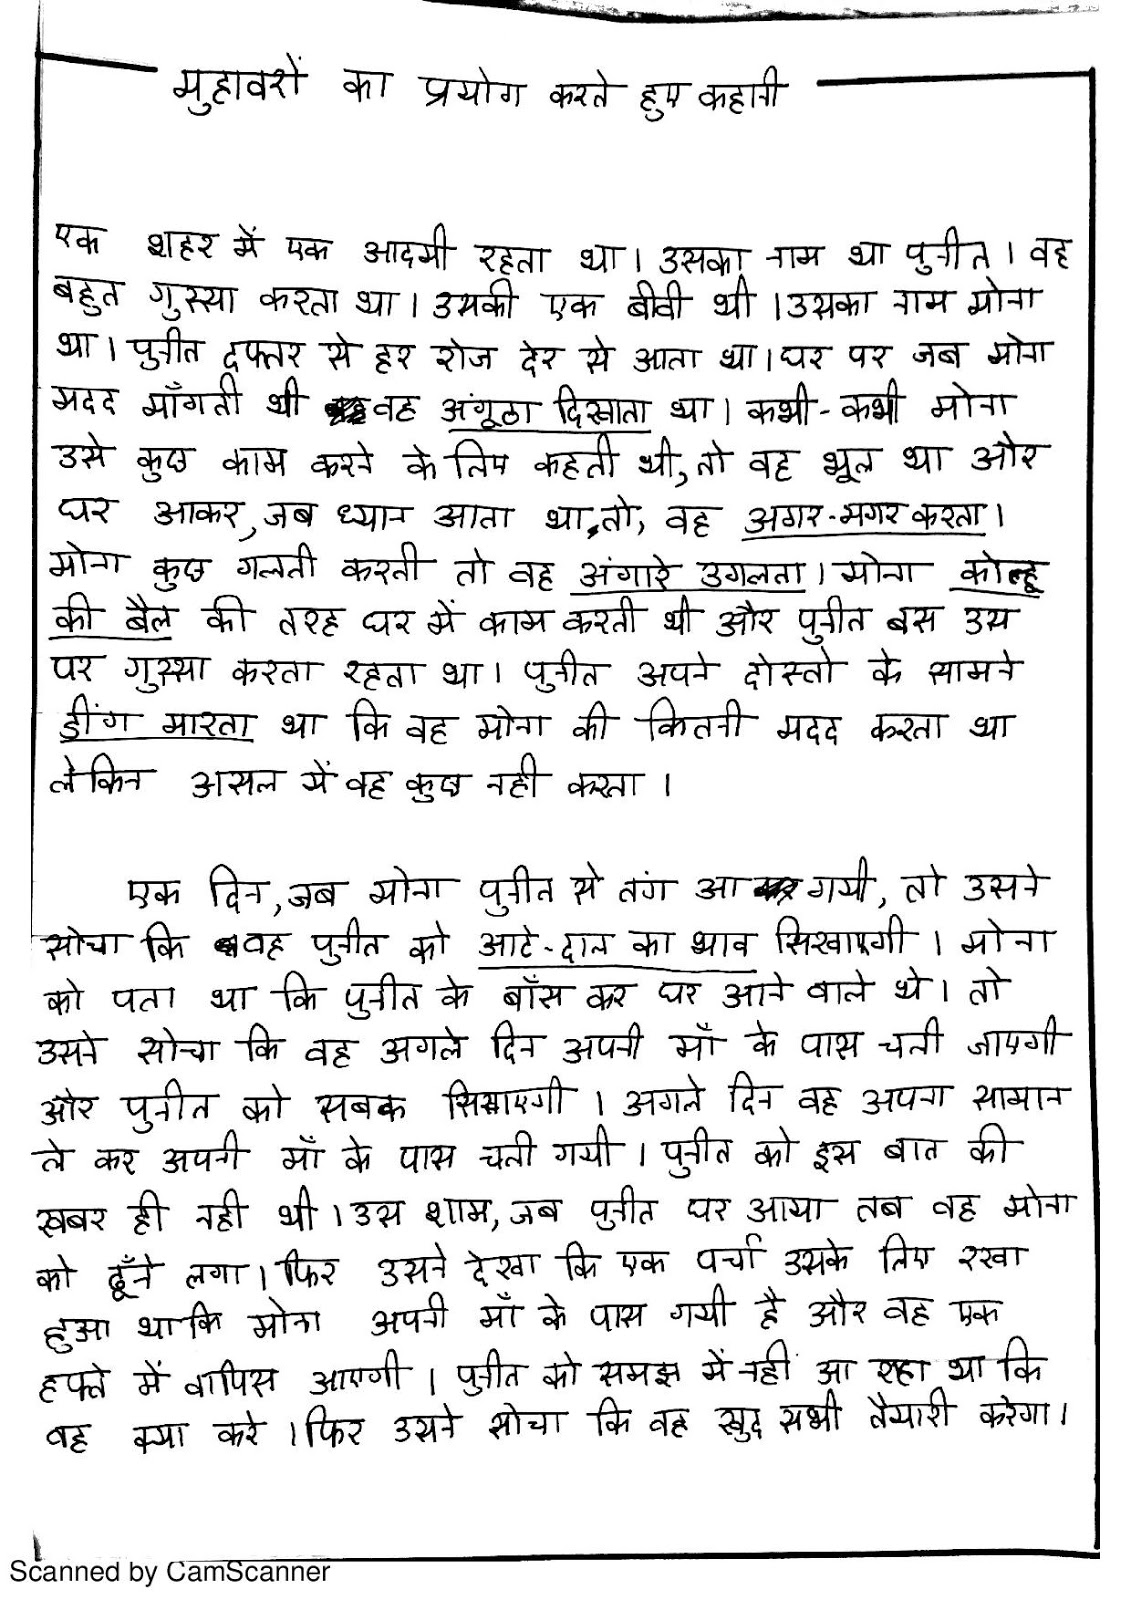 मुहावरों का प्रयोग करते हुए कहानी
एक शहर में एक आदमी रहता था। उसका नाम था पुनीत। वह
बहुत गुस्सा करता था। उसकी एक बीवी थी। उसका नाम मोना
था। पुनीत दफ्तर से हर रोज देर से आता था। घर पर जब मोना
मदद माँगती थी वह अंगूठा दिखाता था। कभी-कभी मोना
उसे कुछ काम करने के लिए कहती थी, तो वह भूल था और
घर आकर, जब ध्यान आता था, तो, वह अगर-मगर करता।
मोना कुछ गलती करती तो वह अंगारे उगलता। मोना कोल्हू
की बैल की तरह घर में काम करती थी और पुनीत बस उस
पर गुस्सा करता रहता था। पुनीत अपने दोस्तो के सामने
डींग मारता था कि वह मोना की कितनी मदद करता था
लेकिन असल में वह कुछ नही करता।
एक दिन, जब मोना पुनीत से तंग आ गयी, तो उसने
सोचा कि वह पुनीत को आटे-दाल का भाव सिखाएगी। मोना
को पता था कि पुनीत के बाँस कर घर आने वाले थे। तो
उसने सोचा कि वह अगले दिन अपनी माँ के पास चली जाएगी
और पुनीत को सबक सिखाएगी। अगले दिन वह अपना सामान
ले कर अपनी माँ के पास चली गयी। पुनीत को इस बात की
खबर ही नही थी। उस शाम, जब पुनीत घर आया तब वह मोना
को ढूँने लगा। फिर उसने देखा कि एक पर्चा उसके लिए रखा
हुआ था कि मोना अपनी माँ के पास गयी है और वह एक
हफ्ते में वापिस आएगी। पुनीत को समझ में नहीं आ रहा था कि
वह क्या करे। फिर उसने सोचा कि वह खुद सभी तैयारी करेगा।
Scanned by CamScanner